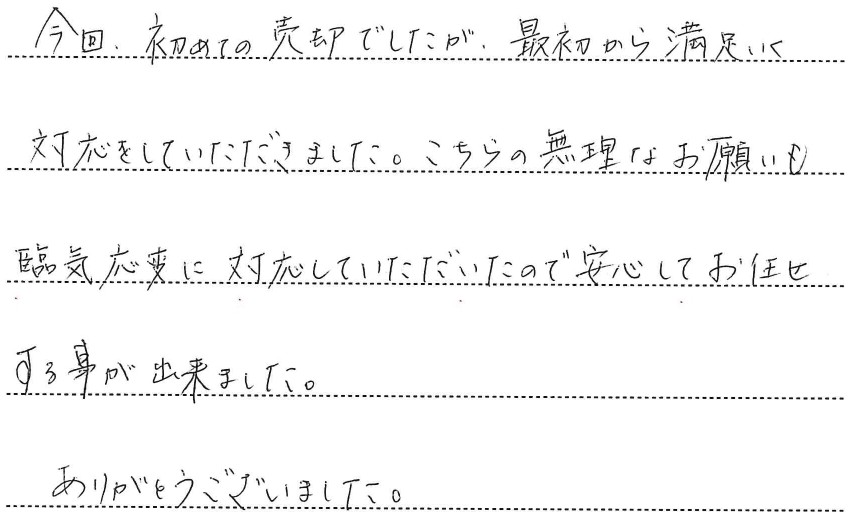 今回、初めての売却でしたが、最初から満足いく
対応をしていただきました。こちらの無理なお願いも
臨気応変に対応していただいたので安心してお任せ
する事が出来ました。
ありがとうございました。